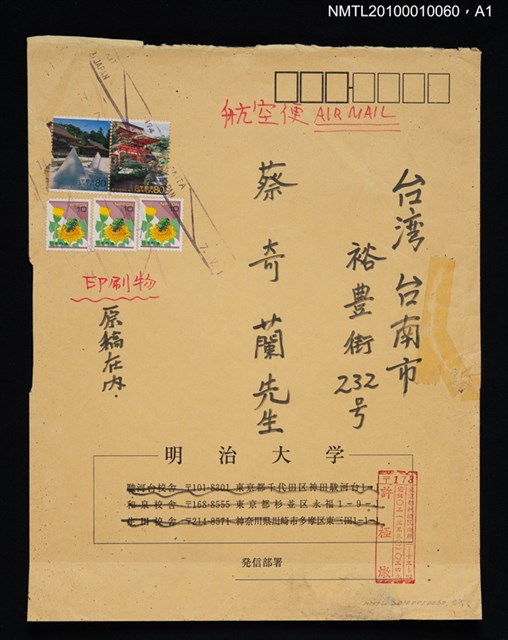 NMTL20100010060，A1
航空便 AIR MAIL
台湾 台南市
裕豊街232号
蔡奇蘭先生
JAPAN
80
10
10
10
印刷物
原稿在内.
明治大学
駿河台校舎 〒101-8301 東京都千代田区神田駿河台1-1
和泉校舎 〒168-8555 東京都杉並区永福1-9-
〒214-8571 神奈川県川崎市多摩区東三田1-1-1
発信部署
〒173
許極燉